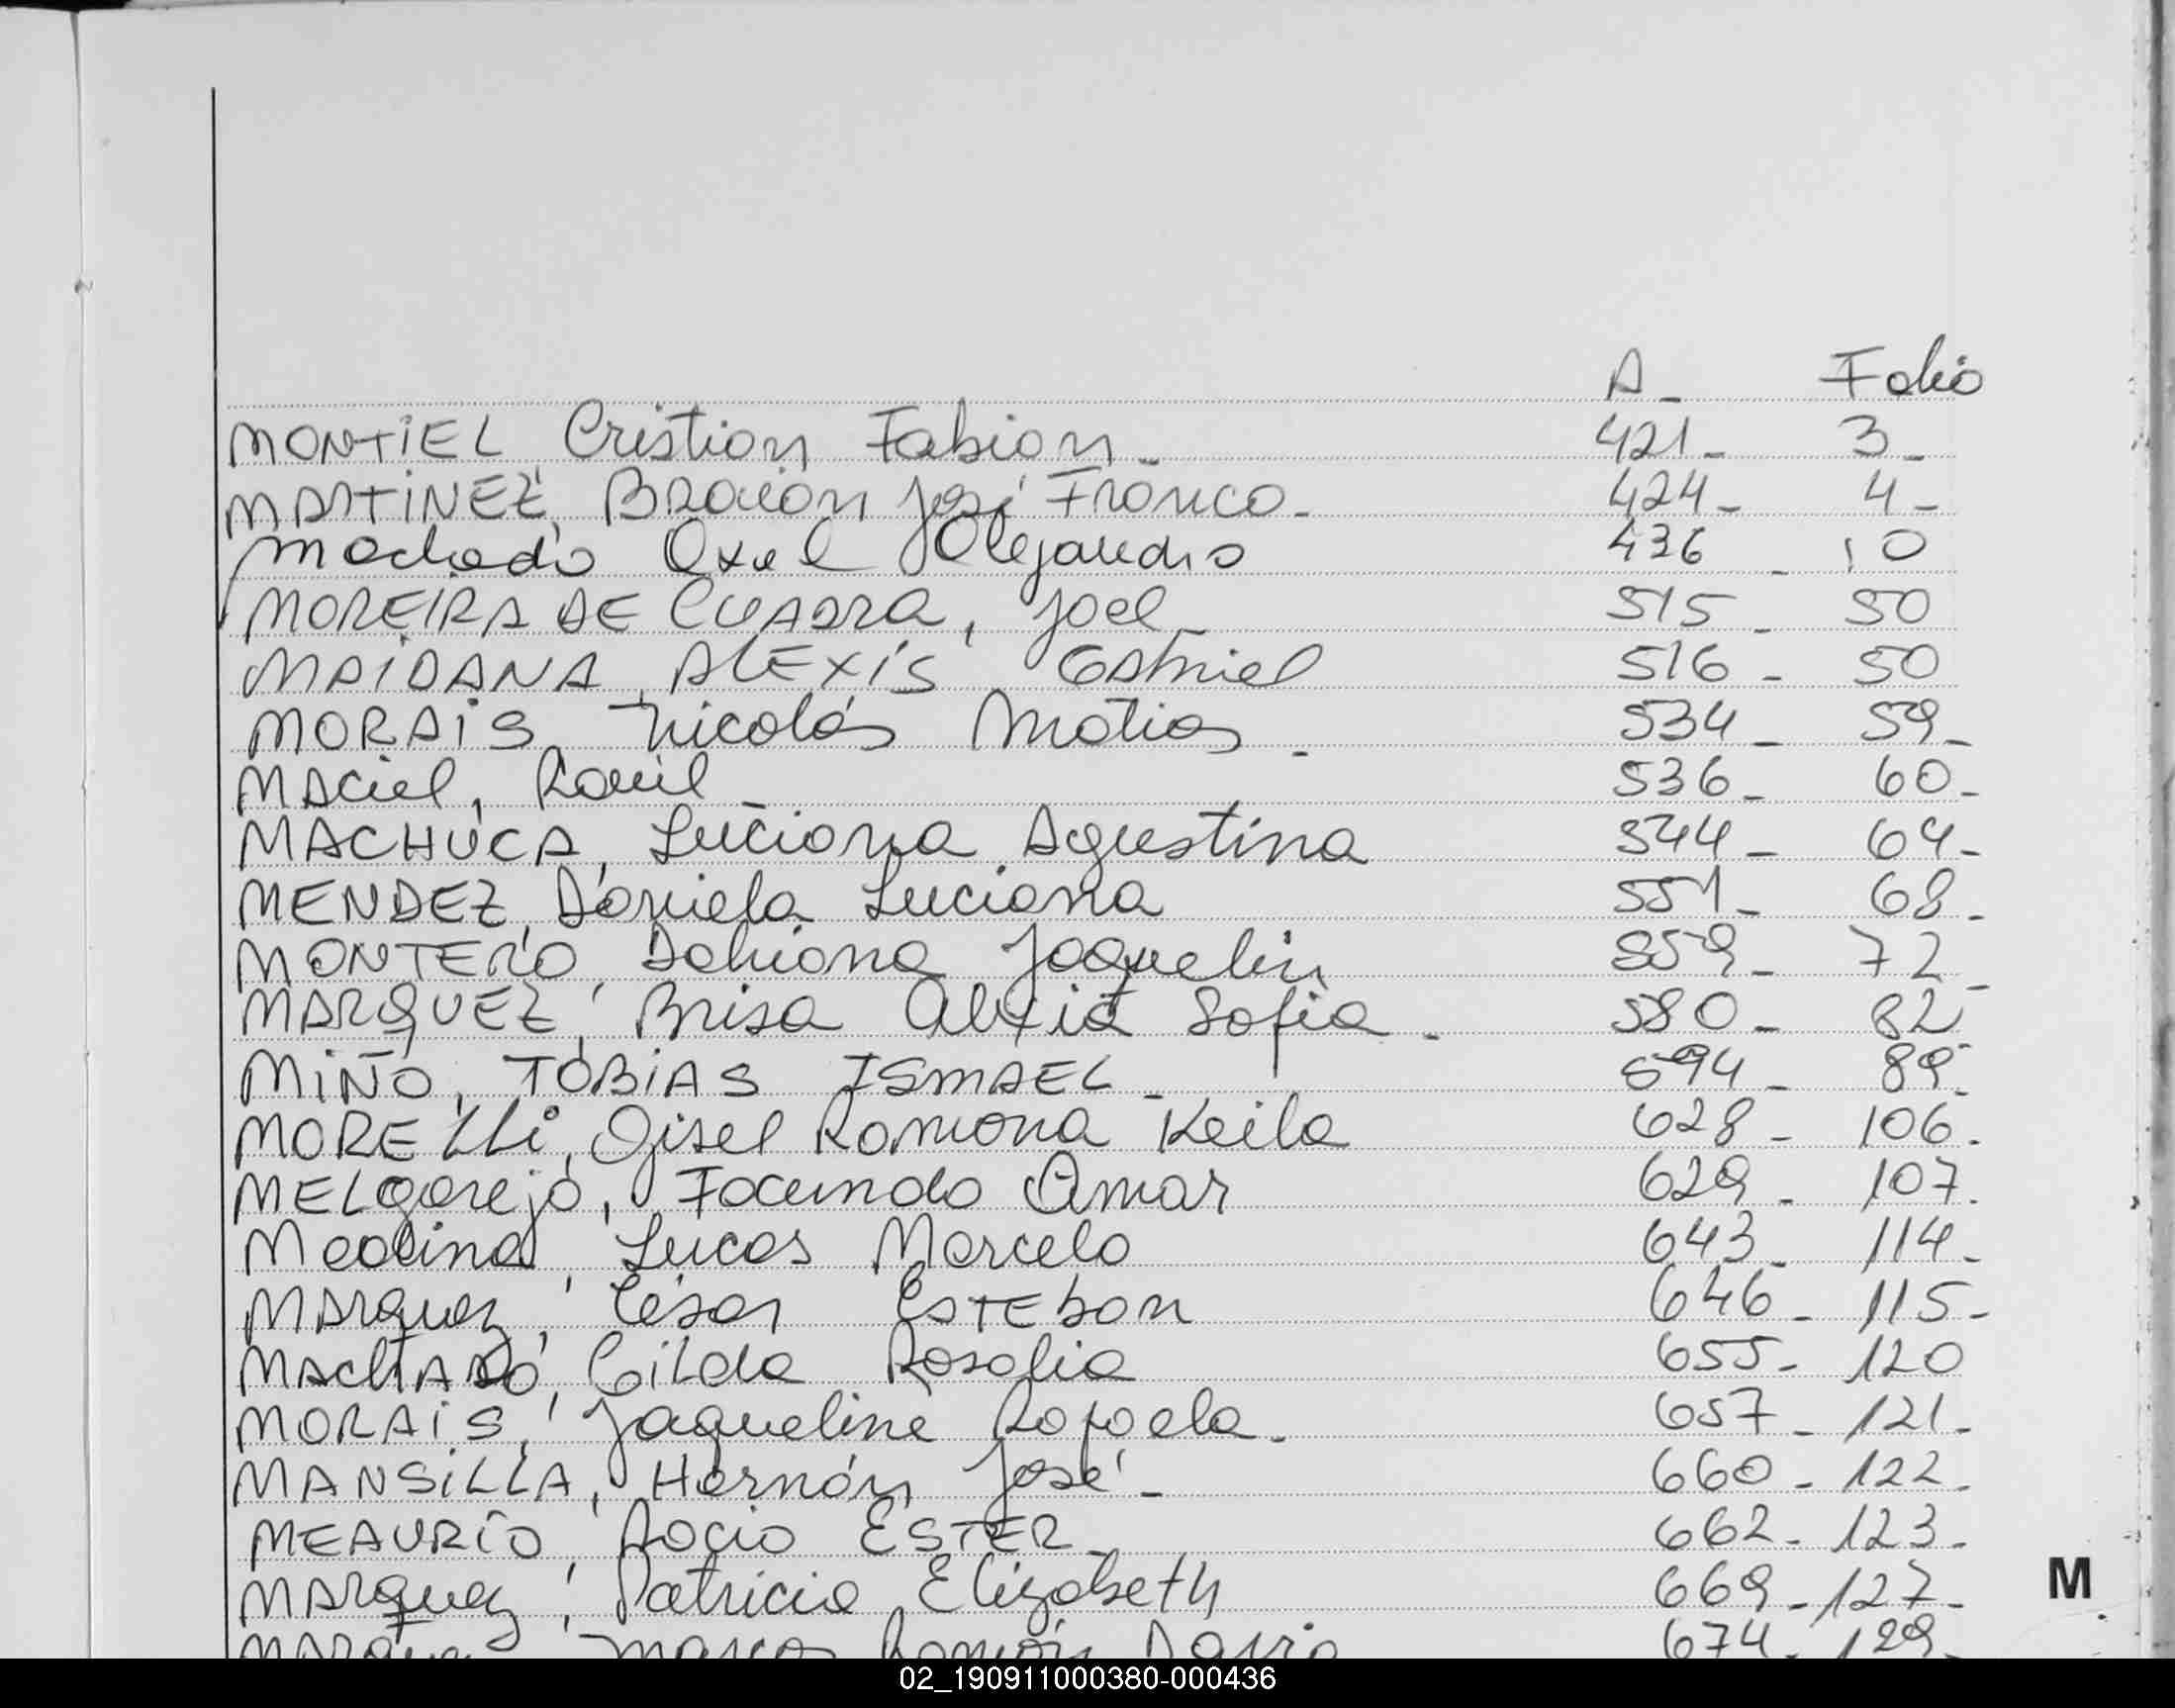 A_ Folio
MONTIEL Cristian Fabian_ 421_ 3_
MARTINEZ, Braian José Franco_ 424_ 4_
Machado Axel Alejandro 436_ 10
MOREIRA DE CUADRA, Joel_ 515_ 50
MAIDANA, ALEXIS Gabriel 516_ 50
MORAIS, Nicolás Matias_ 534_ 59_
MAciel, Raul 536_ 60_
MACHUCA, Luciana Agustina 544_ 64_
MENDEZ, Daniela Luciana 551_ 68_
MONTERO, Dahiana Jaquelin 559_ 72_
MARQUEZ, Brisa Alexia Sofia_ 580_ 82
MIÑO, TOBIAS ISMAEL_ 594_ 89_
MORELLi, Gisel Ramona Keila 628_ 106.
MELgarejo, Facundo Omar 629_ 107.
Medina, Lucas Marcelo 643_ 114_
MArquez, César ESTEban 646_ 115_
MAcHADO, Gilda Rosalia 655_ 120
MORAIS, Jaqueline Rafaela_ 657_ 121_
MANSILLA, Hernán José_ 660_ 122_
MEAURIO, Rocio ESTER_ 662_ 123_
MArquez, Patricia Elizabeth 669_ 127_
Ramón 674_ 129_
M
02_190911000380-000436